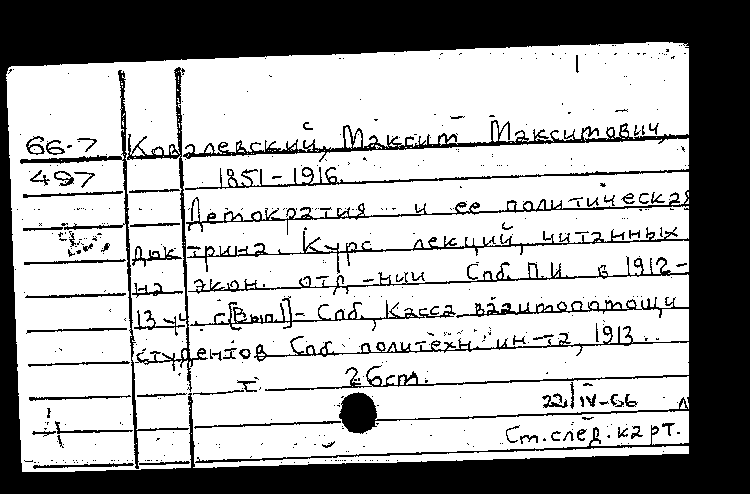 66-7 Ковалевский, Максим Максимович,
497 1851-1916.
Демократия и ее политическая
доктрина. Курс лекций, читанных
на экон. отд-нии Спб. П.И. в 1912-
13 уч. г. [Вып. I] - Спб., Касса взаимопомощи
студентов Спб. политехн. ин-та, 1913.
I 26 cm.
22/IV-66
4 Ст. след. карт.